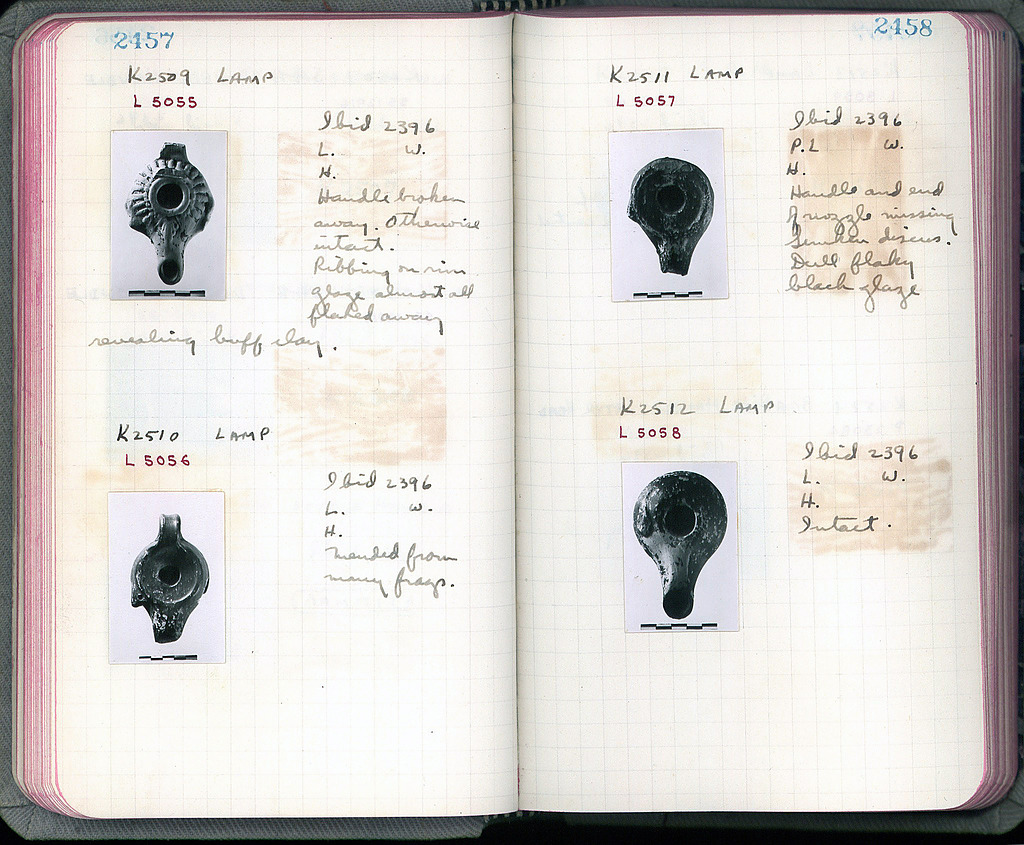 2457
K2509 LAMP
L 5055
Ibid 2396
L. W.
H.
Handle broken
away. Otherwise
intact.
Ribbing on rim
glaze almost all
flaked away
revealing buff clay.
K2510 LAMP
L 5056
Ibid 2396
L. W.
H.
Mended from
many frags.
2458
K2511 LAMP
L 5057
Ibid 2396
P.L W.
H.
Handle and end
of nozzle missing
Sunken discus.
Dull flaky
black glaze
K2512 LAMP
L 5058
Ibid 2396
L. W.
H.
Intact.